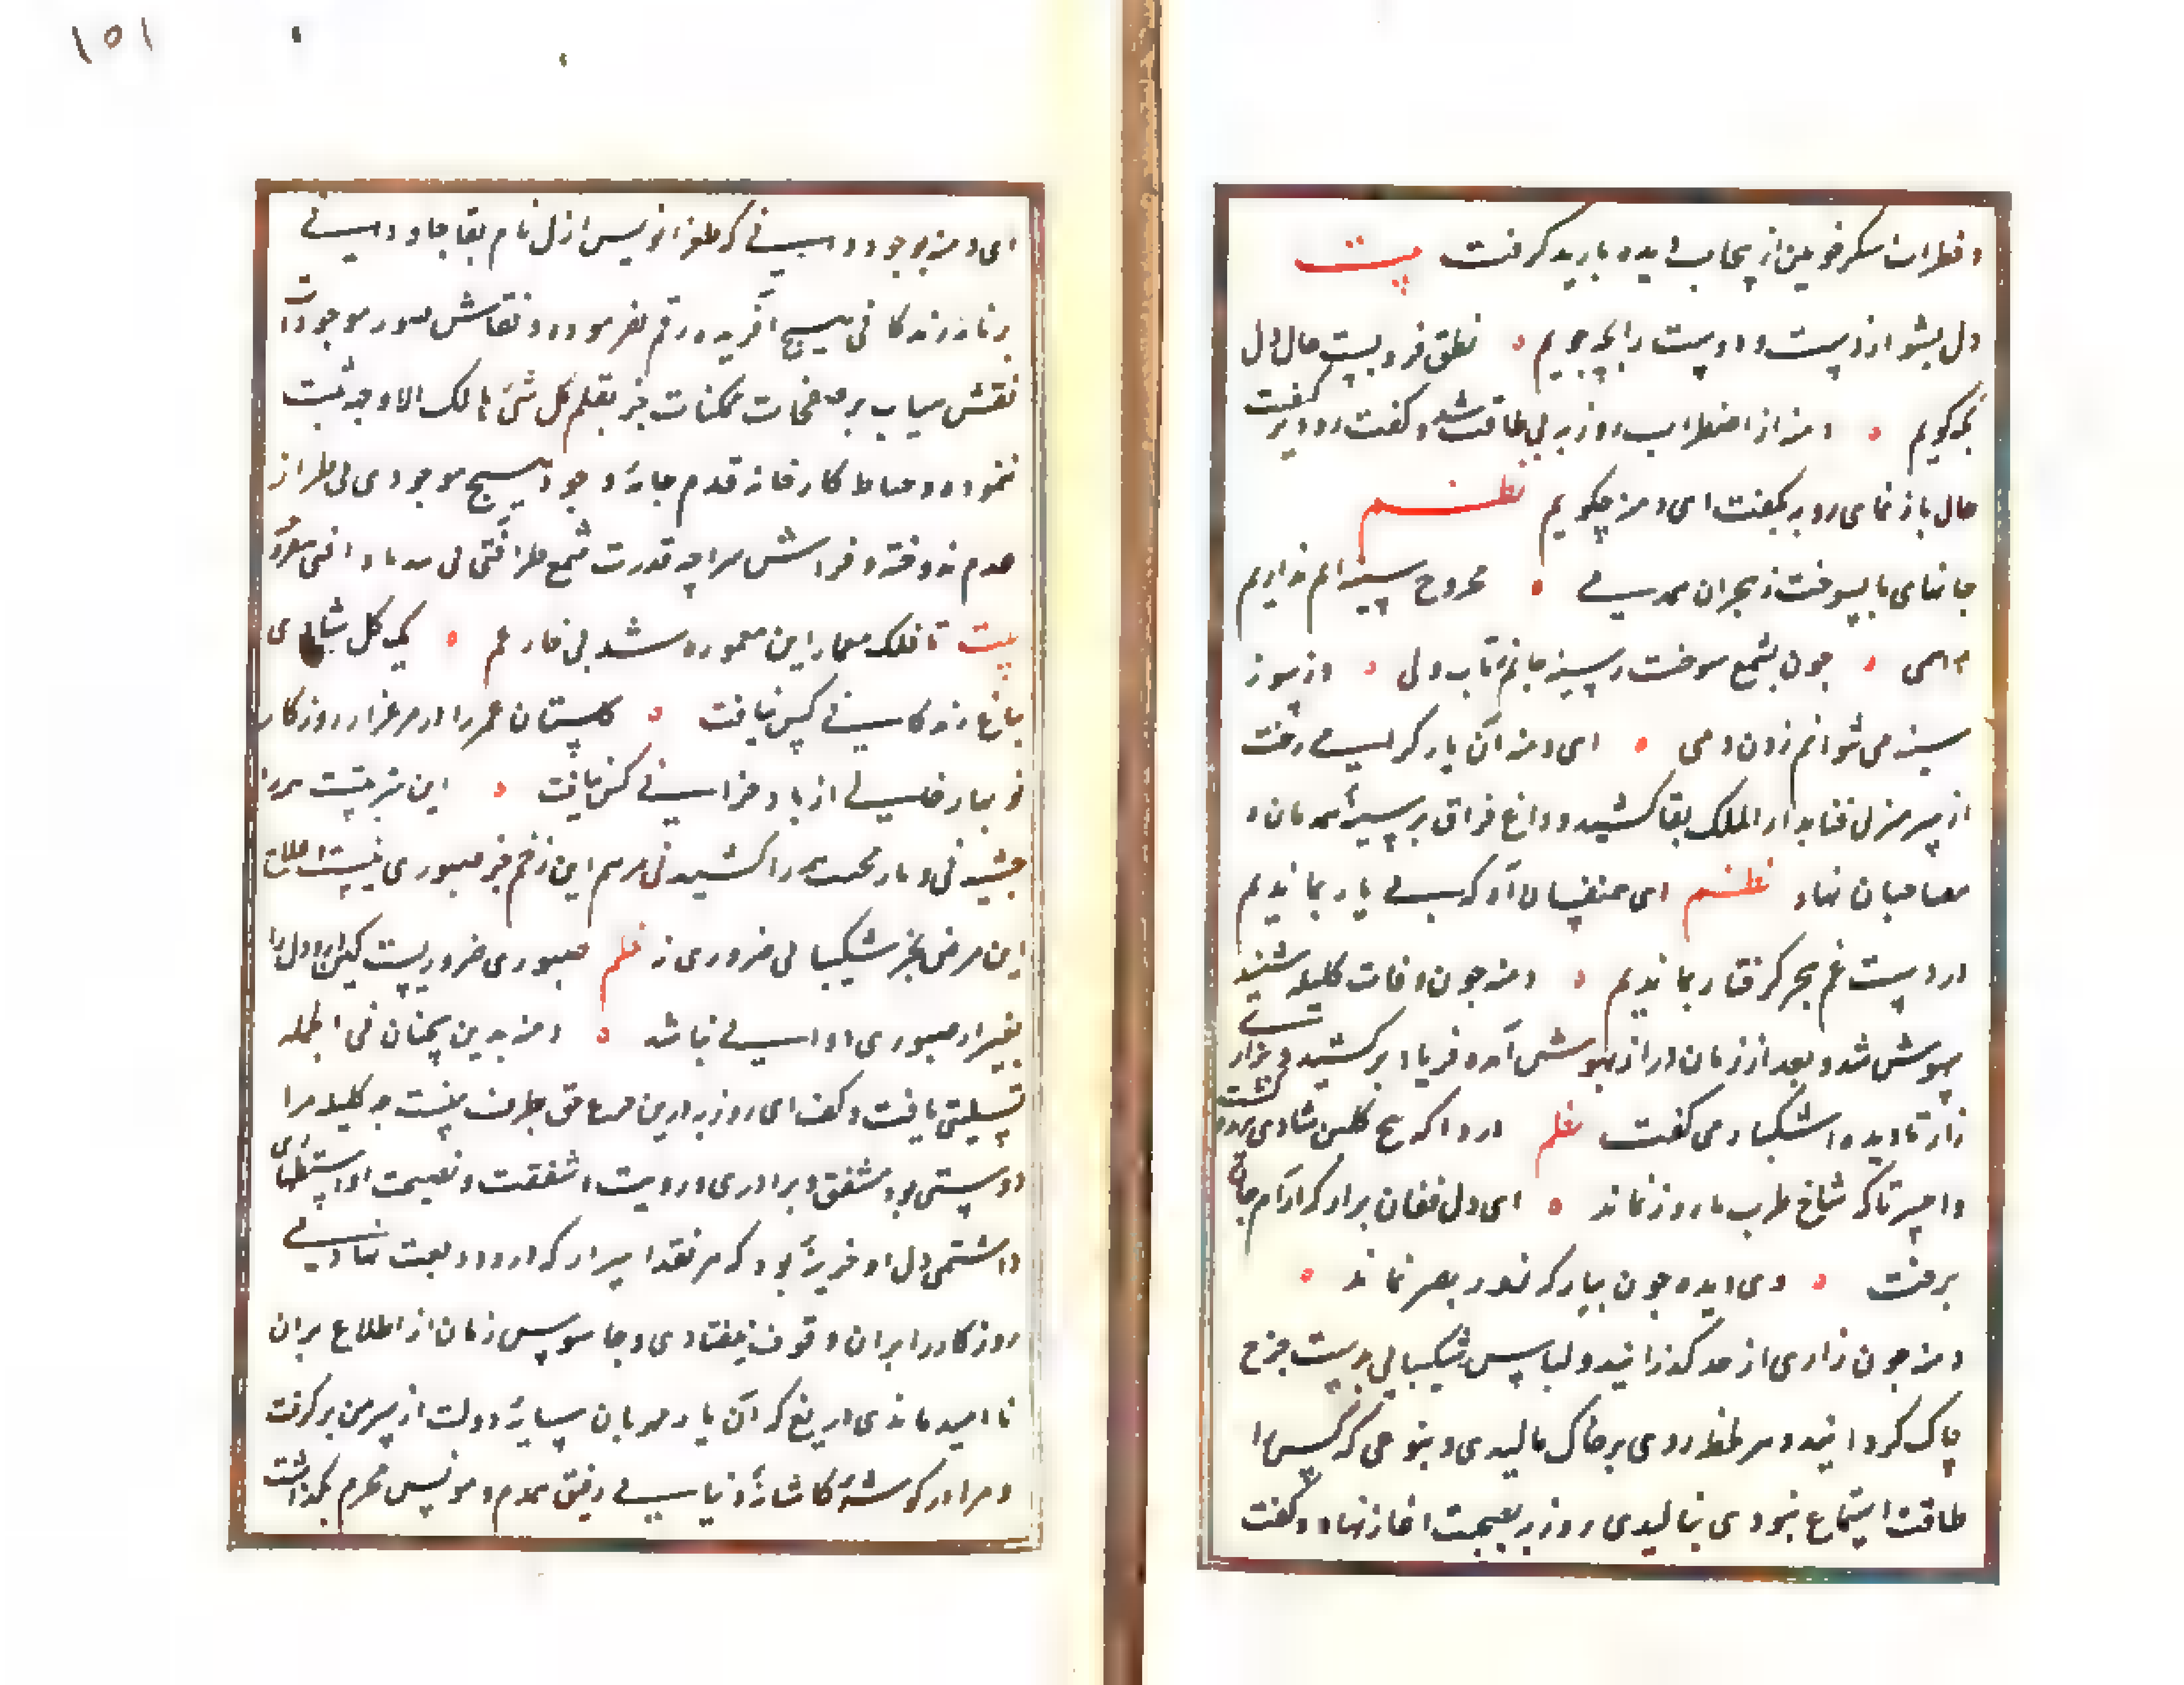 و قطرات سکر خونین از سحاب دیده بارید گرفت بیت
دل بشد از دست و دوست را بچه جویم نطق فرو بست حال دل
بچه گویم دمنه از اضطراب روزبه بی طاقت شد و گفت زودتر کیفیت
حال باز نمای روزبه گفت ای دمنه چگویم نظم
جانهای ما بسوخت ز هجران همدمی مجروح سینه ایم نداریم
مرهمی چون شمع سوخت رسینه جانم تاب دل وز سوز
سینه می نتوانم زدن دمی ای دمنه آن یار گرامی رخت
از سر منزل فنا بدار الملک بقا کشید و داغ فراق بر سینه همدمان و
مصاحبان نهاد نظم ای همنفسان آه که بی یار بماندیم
در دست غم هجر گرفتار بماندیم دمنه چون وفات کلیله شنید
بیهوش شد و بعد از زمان دراز بهوش آمد فریاد برکشید و بزاری
زار تا دیده اشکبار می گفت نظم دردا که هیچ گلبن شادی
واحسرتا که شاخ طرب باروز نماند ای دل فغان برآر که آرام جان
برفت وی دیده خون ببار که نور بصر نماند
دمنه چون زاری از حد گذرانید و لباس شکیبائی بدست جزع
چاک گردانید و هر لحظه روی بر خاک مالیدی و بنوعی که کس را
طاقت استماع نبودی بنالیدی روزبه نصیحت آغاز نهاد و گفت
۱۵۱
ای دمنه بوجود دانی که طغرا نویس ازل نام بقا جاودانی
بر نامه زندگانی هیچ آفریده رقم نفرموده و نقاش صور موجودات
نقش حیات بر صفحات ممکنات جز بقلم کل شئ هالک الا وجهه ثبت
ننموده و خیاط کارخانه قدم جامه وجود هیچ موجودی بی طراز
عدم ندوخته و فراش سراچه قدرت شمع طراقتی بی
بیت تا فلک معمار این معموره شد بی خار غم یک گل شادی
باغ زندگانی کس نیافت گلستان عمر را در مرغزار روزگار
نوبهار خالی از باد خزانی کس نیافت این شربتیست
چشیدنی و بار محنت را کشیدنی مرهم این زخم جز صبوری نیست
این مرض بجز شکیبائی ضروری نه نظم صبوری ضروریست
بغیر از صبوری دوائی نباشد دمنه بدین سخنان فی الجمله
تسلیتی یافت و گفت ای روزبه درین حق بطرف منست چه کلیله مرا
دوستی بود مشفق و برادری درویت شفقت و نصیحت
داشتمی دل او خزینه بود که هر نقد اسرار که درو ودیعت نهادمی
روزگار را بر آن وقوف نیفتادی و جاسوس زمان از اطلاع بر آن
ناامید ماندی دریغ که آن یار مهربان سایه دولت از سر من برگرفت
و مرا در گوشه کاشانه دنیا بی رفیق همدم و مونس محرم بگذاشت